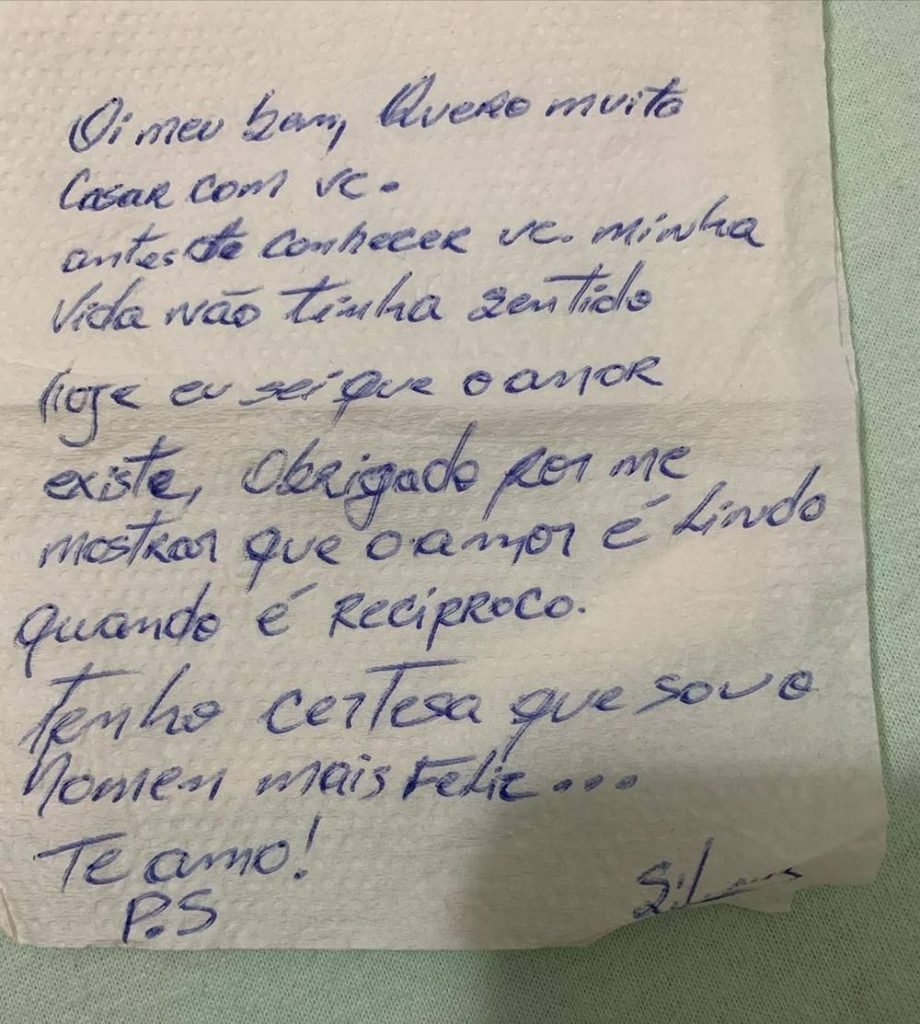 Oi meu bem, Quero muito
Casar com vc.
antes de conhecer vc. minha
Vida não tinha sentido
Hoje eu sei que o amor
existe, Obrigado por me
mostrar que o amor é Lindo
quando é Reciproco.
Tenho certesa que sou o
homem mais Feliz...
Te amo!
P.S